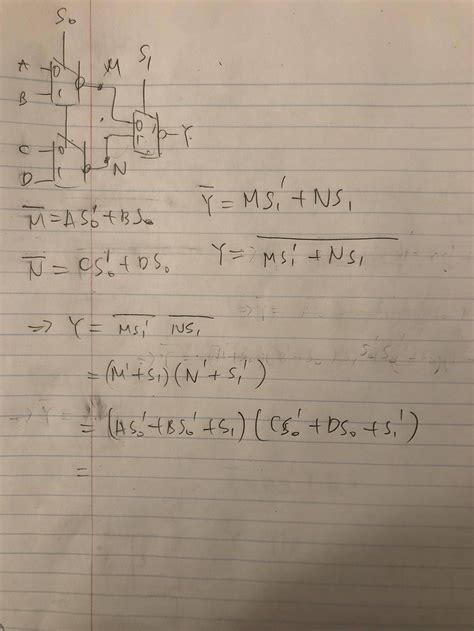 S₀
A 0 M S₁
B 1
0
1 Y
C 0
D 1 N
M̅ = AS₀' + BS₀
Y̅ = MS₁' + NS₁
N̅ = CS₀' + DS₀
Y = \overline{MS₁' + NS₁}
=> Y = \overline{MS₁'} \overline{NS₁}
= (M' + S₁) (N' + S₁')
= (AS₀' + BS₀' + S₁) (CS₀' + DS₀ + S₁')
=